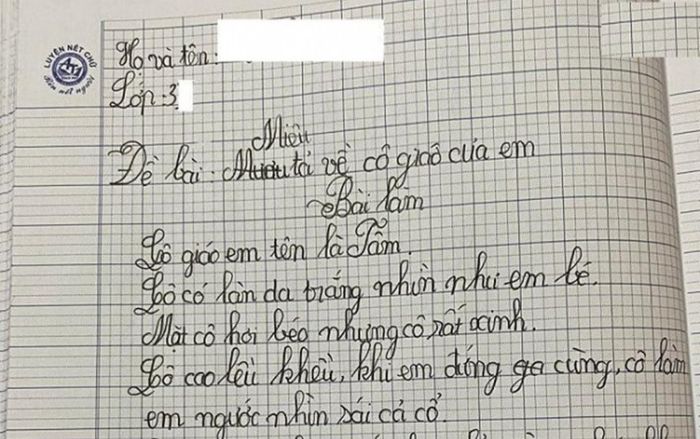 LUYỆN NÉT CHỮ
Rèn nết người
Họ và tên:
Lớp: 3
Miêu
Đề bài: Mưuu tả về cô giáo của em
Bài làm
Cô giáo em tên là Tâm.
Cô có làn da trắng nhìn như em bé.
Mặt cô hơi béo nhưng cô rất xinh.
Cô cao lêu khêu, khi em đứng ga cùng, cô làm
em ngước nhìn sái cả cổ.